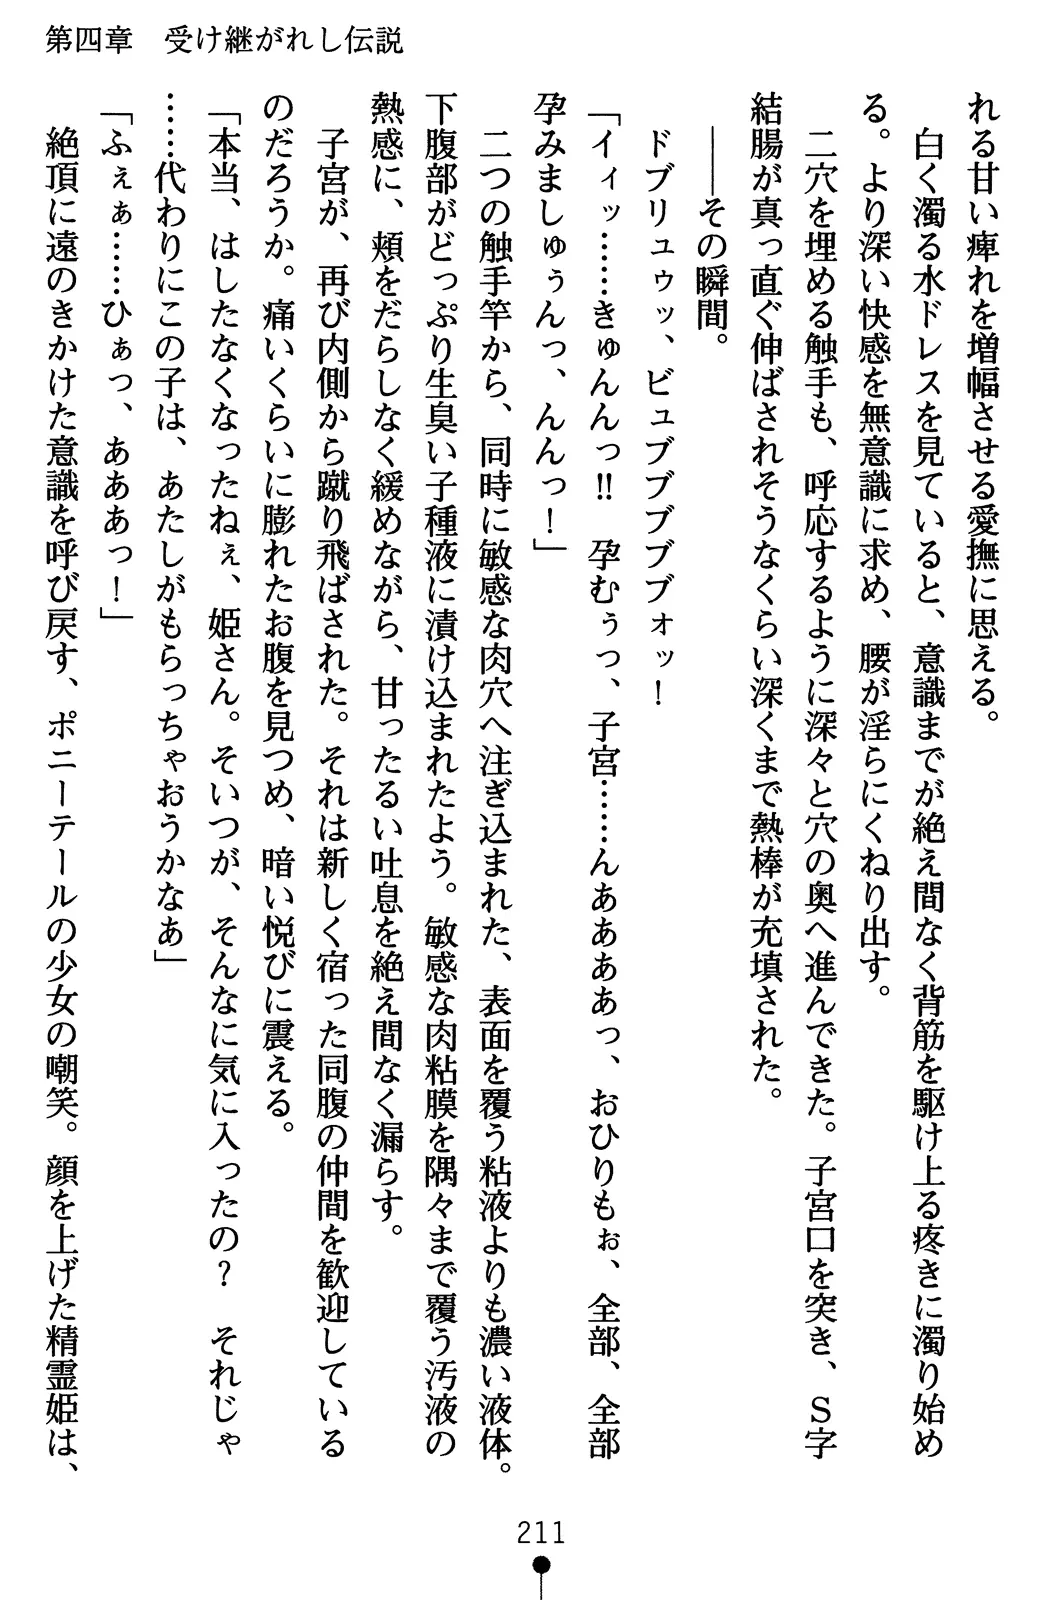 第四章　受け継がれし伝説
れる甘い痺れを増幅させる愛撫に思える。
　白く濁る水ドレスを見ていると、意識までが絶え間なく背筋を駆け上る疼きに濁り始め
る。より深い快感を無意識に求め、腰が淫らにくねり出す。
　二穴を埋める触手も、呼応するように深々と穴の奥へ進んできた。子宮口を突き、Ｓ字
結腸が真っ直ぐ伸ばされそうなくらい深くまで熱棒が充填された。
　――その瞬間。
　ドブリュゥッ、ビュブブブブブォッ！
「イィッ……きゅんんっ‼　孕むぅっ、子宮……んああああっ、おひりもぉ、全部、全部
孕みましゅぅんっ、んんっ！」
　二つの触手竿から、同時に敏感な肉穴へ注ぎ込まれた、表面を覆う粘液よりも濃い液体。
下腹部がどっぷり生臭い子種液に漬け込まれたよう。敏感な肉粘膜を隅々まで覆う汚液の
熱感に、頬をだらしなく緩めながら、甘ったるい吐息を絶え間なく漏らす。
　子宮が、再び内側から蹴り飛ばされた。それは新しく宿った同腹の仲間を歓迎している
のだろうか。痛いくらいに膨れたお腹を見つめ、暗い悦びに震える。
「本当、はしたなくなったねぇ、姫さん。そいつが、そんなに気に入ったの？　それじゃ
……代わりにこの子は、あたしがもらっちゃおうかなぁ」
「ふぇぁ……ひぁっ、あああっ！」
　絶頂に遠のきかけた意識を呼び戻す、ポニーテールの少女の嘲笑。顔を上げた精霊姫は、
211